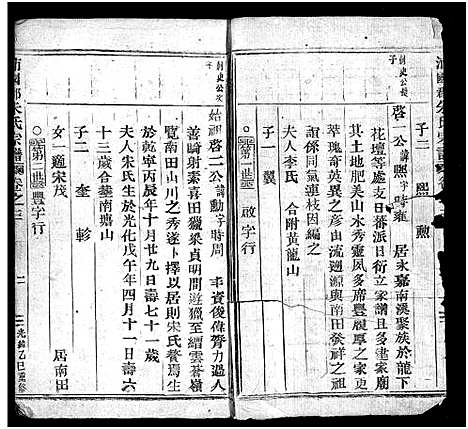 子二 熙 勲
啓一公諱熙字時雍 居永嘉南溪聚族於龍下
花壇等處支日蕃派日衍立家譜且多建家廟
其土地肥美山水秀靈風多席豐履厚人多出
萃瑰奇英異之彦由流遡源與南田發祥之祖
誼係同氣連枝因及之
夫人李氏 合附黄龍山
子一 翼
第二世 啟字行
始祖啓二公諱勳字時周 丰資俊偉膂力過人
善騎射素喜田獵梁貞明間遊獵至縉雲蒼嶺
覽南田山川之秀遂卜擇以居則宋氏聱焉生
於乾寧丙辰年十月廿九日壽七十一歲
夫人朱氏生於光化戊午年四月十一日壽六
十三歲合塟南塘山
子二 奎 軫
女一 適宋茂 居南田
第二世 豐字行
沛國郡朱氏宗譜 卷之三
光緒乙巳重修